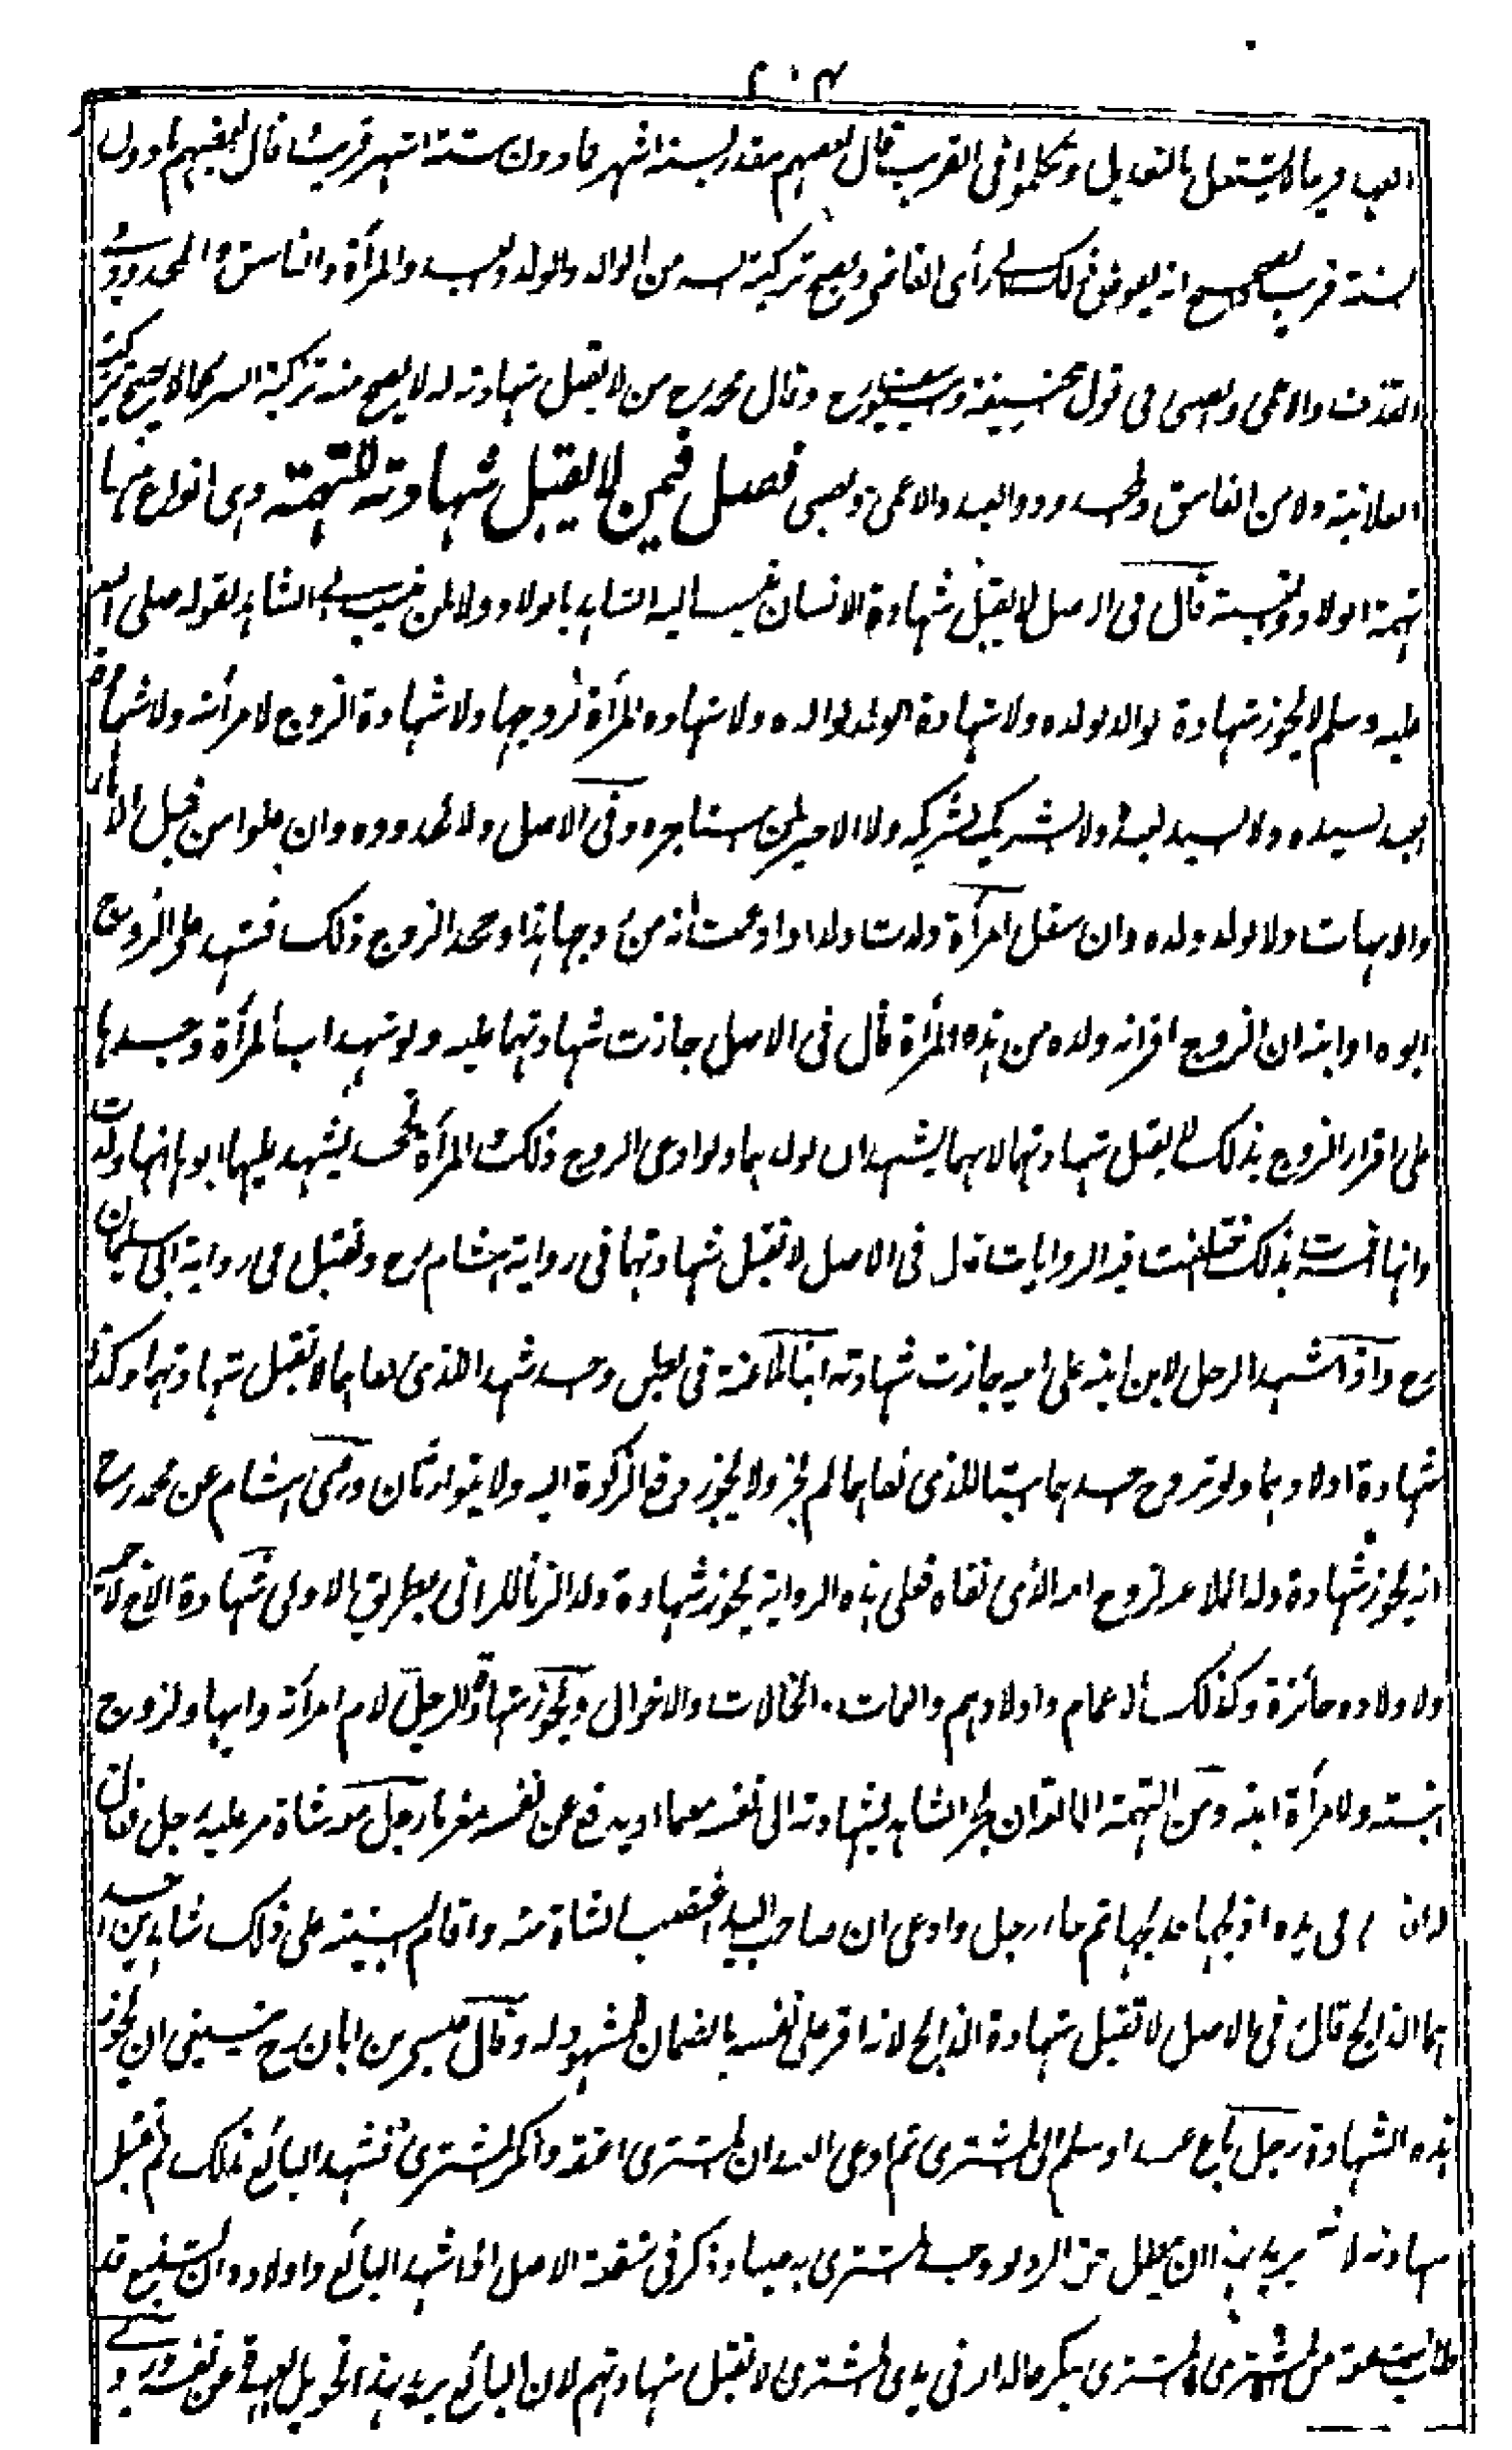 ٢٠٣
بالتعديل وتكلموا فى القريب قال بعضهم مقدر بستة اشهر فما دون ستة اشهر قريب وقال بعضهم ما دون
سنة قريب والصحيح انه يفوض ذلك الى رأى القاضى ويصح تزكية السر من الوالد والولد والعبد والمرأة والفاسق والمحدود فى
القذف والاعمى والصبى فى قول ابيحنيفة وابى يوسف رح وقال محمد رح من لا يقبل شهادته له لا يصح منه تزكية السر كما لا يصح تزكية
العلانية ولا من الفاسق والمحدود والعبد والاعمى والصبى فصل فيمن لا يقبل شهادته للتهمة وهى انواع منها
تهمة الولاد قال فى الاصل لا يقبل شهادة الانسان لمن ينسب اليه الشاهد بالولاد ولا لمن ينسب الى الشاهد لقوله صلى الله
عليه وسلم لا يجوز شهادة الوالد لولده ولا شهادة الولد لوالده ولا شهادة المرأة لزوجها ولا شهادة الزوج لامرأته ولا شهادة
العبد لسيده ولا السيد لعبده ولا الشريك لشريكه ولا الاجير لمن استاجره وفى الاصل ولا لجدوده وان علوا من قبل الآباء
والامهات ولا لولد ولده وان سفل امرأة ولدت ولدا وادعت انه من زوجها هذا وجحد الزوج ذلك فشهد على الزوج
ابوه او ابنه ان الزوج اقر انه ولده من هذه المرأة قال فى الاصل جازت شهادتهما عليه ولو شهد اب المرأة وجدها
على اقرار الزوج بذلك لا يقبل شهادتهما لانهما يشهدان لولدهما ولو ادعى الزوج ذلك والمرأة تجحد فشهد عليها ابوها انها ولدت
وانها اقرت بذلك اختلفت فيه الروايات قال فى الاصل لا تقبل شهادتهما فى رواية هشام رح وتقبل فى رواية ابى سليمان
رح واذا شهد الرجل لابن ابنه على ابيه جازت شهادته ابنا الملاعنة فى شهد للذى نفاهما لا تقبل شهادتهما وكذا
شهادة اولادهما ولو تزوج احدهما بنتا للذى نفاهما لم يجز ولا يجوز دفع الزكوة اليه ولا يتوارثان وروى هشام عن محمد رح
انه يجوز شهادة ولد الملاعنة لزوج امه الذى نفاه فعلى هذه الرواية يجوز شهادة ولد الزنا للزانى بطريق الاولى شهادة الاخ لاخيه
ولاولاده جائزة وكذلك الاعمام واولادهم والعمات والخالات والاخوال ويجوز شهادة الرجل لام امرأته وابيها ولزوج
ابنته ولامرأة ابنه ومن التهمة المانعة ان يجر الشاهد بشهادته الى نفسه مغنما او يدفع عن نفسه مغرما رجل معه شاة مر عليه رجل فقال
فى يده اذبحها فذبحها ثم جاء رجل وادعى ان صاحب اليد اغتصب الشاة منه واقام البينة على ذلك شاهدين احد
هما الذابح قال فى الاصل لا تقبل شهادة الذابح لانه اقر على نفسه بالضمان للمشهود له وقال عيسى بن ابان رح ينبغى ان يجوز
هذه الشهادة رجل باع عبدا وسلم الى المشترى ثم ادعى العبد ان المشترى اعتقه وانكر المشترى فشهد البائع بذلك لم تقبل
شهادته لانه يريد بهذا ان يبطل حق الرد لو وجد المشترى به عيبا وذكر فى شفعة الاصل اذا شهد البائع واولاده ان الشفيع قد
طلب الشفعة من المشترى والمشترى ينكر والدار فى يدى المشترى لا تقبل شهادتهم لان البائع يريد بهذا تحويل العهدة عن نفسه